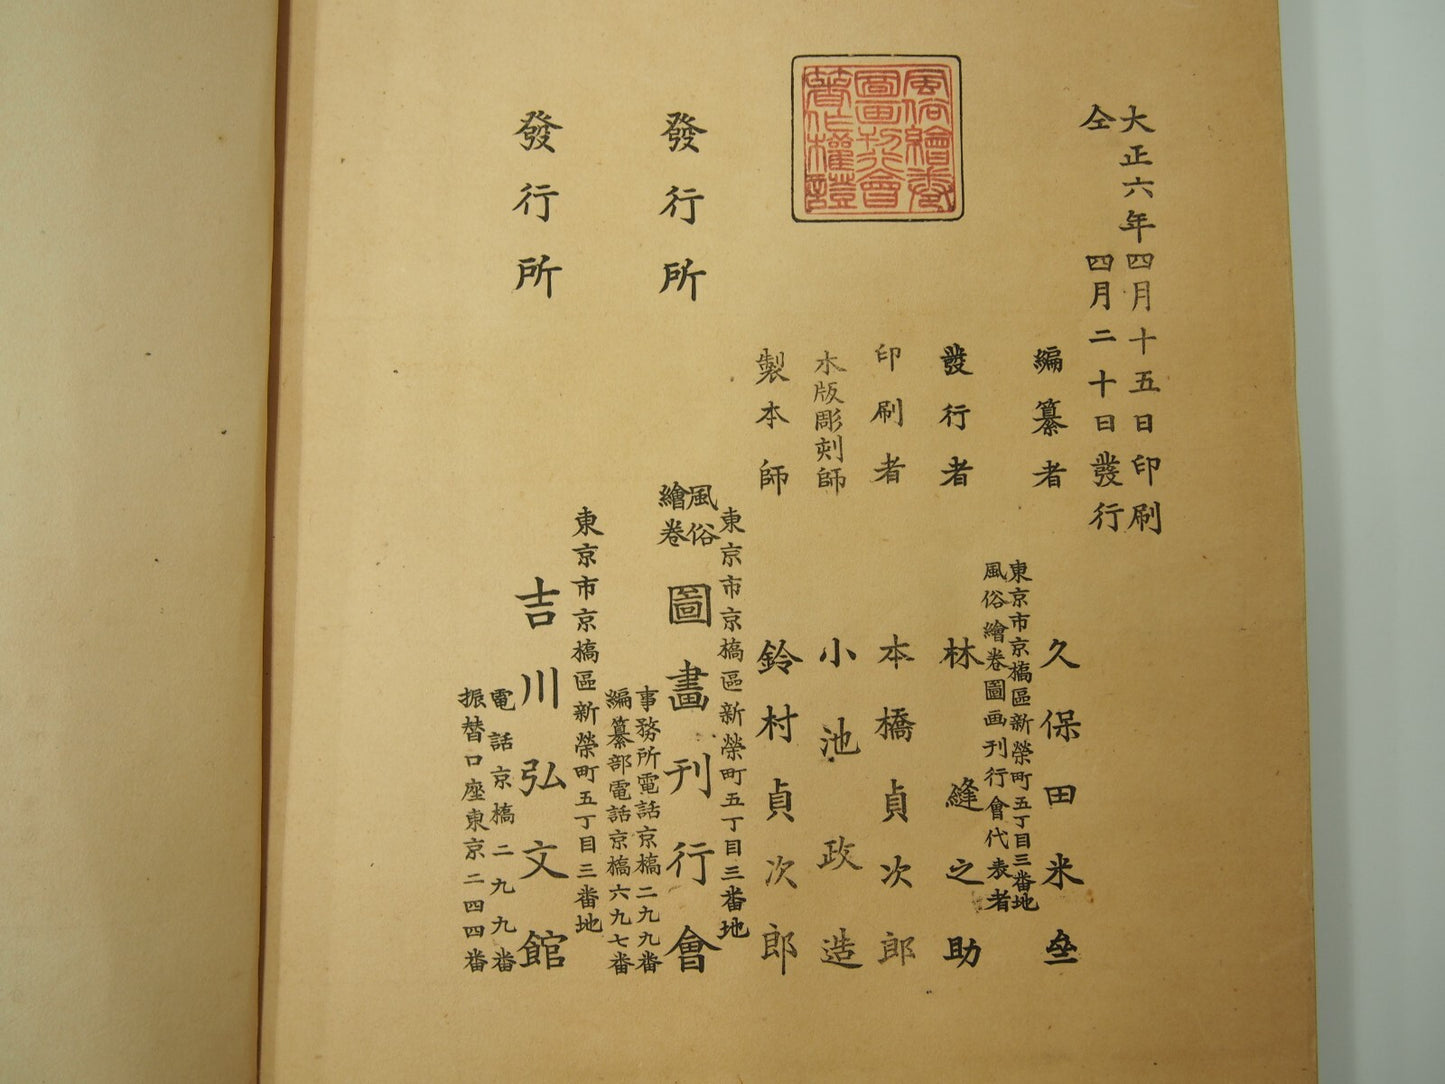 大正六年四月十五日印刷
仝　　　四月二十日發行
編纂者　久保田米齋
東京市京橋區新榮町五丁目三番地
風俗繪卷圖画刊行會代表者
發行者　林縫之助
印刷者　本橋貞次郎
木版彫刻師　小池政造
製本師　鈴村貞次郎
風俗繪卷
圖画刊行會
著作權證
東京市京橋區新榮町五丁目三番地
發行所　風俗繪卷圖畫刊行會
事務所電話京橋二九九番
編纂部電話京橋六九七番
東京市京橋區新榮町五丁目三番地
發行所　吉川弘文館
電話京橋二九九番
振替口座東京二四四番